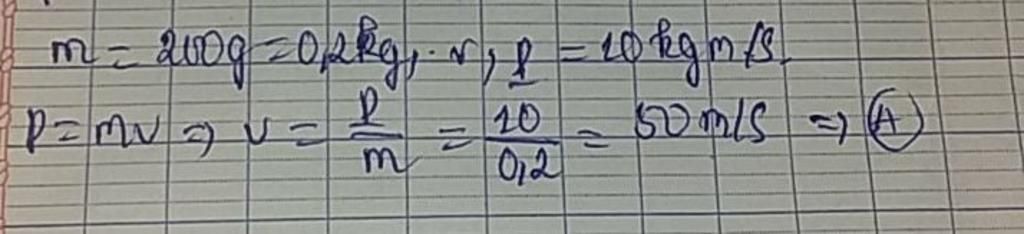 m = 200g = 0,2kg, v, p = 10 kgm/s.
P = mv => v = P/m = 10/0,2 = 50 m/s => A